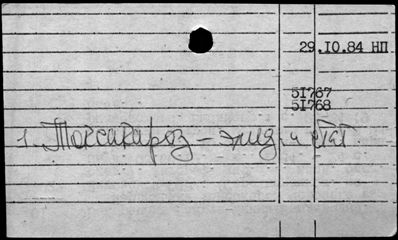 29.IO.84 НП
5I767
5I768
1. Токсакароз – эпид. и стат.